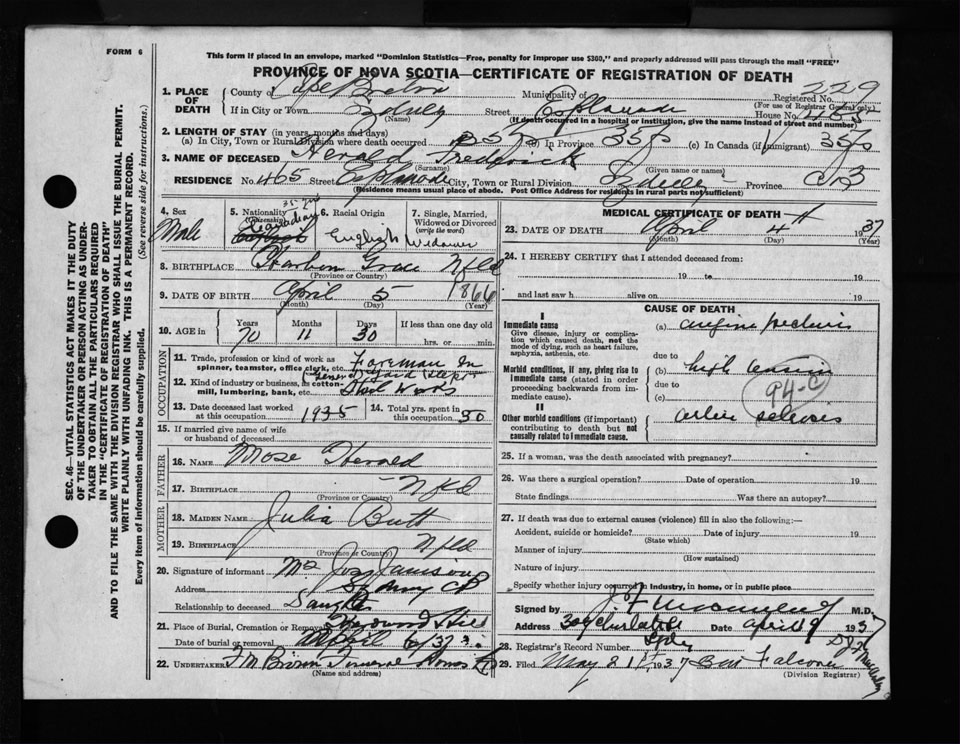 FORM 6
This form if placed in an envelope, marked "Dominion Statistics—Free, penalty for improper use $300," and properly addressed will pass through the mail "FREE"
PROVINCE OF NOVA SCOTIA—CERTIFICATE OF REGISTRATION OF DEATH
SEC. 46—VITAL STATISTICS ACT MAKES IT THE DUTY
OF THE UNDERTAKER OR PERSON ACTING AS UNDER-
TAKER TO OBTAIN ALL THE PARTICULARS REQUIRED
IN THE "CERTIFICATE OF REGISTRATION OF DEATH"
AND TO FILE THE SAME WITH THE DIVISION REGISTRAR WHO SHALL ISSUE THE BURIAL PERMIT.
WRITE PLAINLY WITH UNFADING INK. THIS IS A PERMANENT RECORD.
Every item of information should be carefully supplied. (See reverse side for instructions.)
1. PLACE OF DEATH
County of Cape Breton Municipality of Registered No. 229
(For use of Registrar General only.)
If in City or Town Sydney Street Esplanade House No. 465
(Name) (If death occurred in a hospital or institution, give the name instead of street and number)
2. LENGTH OF STAY (in years, months and days)
(a) In City, Town or Rural Division where death occurred 35 (b) In Province 35 (c) In Canada (if immigrant) 35
3. NAME OF DECEASED Herald Frederick
(Surname) (Given name or names)
RESIDENCE No. 465 Street Esplanade City, Town or Rural Division Sydney Province CB
(Residence means usual place of abode. Post Office Address for residents in rural parts not sufficient)
4. Sex Male
5. Nationality (Citizenship) Canadian
6. Racial Origin English
7. Single, Married, Widowed or Divorced (write the word) Widower
8. BIRTHPLACE Harbor Grace Nfld
(Province or Country)
9. DATE OF BIRTH April 5 1866
(Month) (Day) (Year)
10. AGE in Years 70 Months 11 Days 30 If less than one day hrs. or min.
OCCUPATION
11. Trade, profession or kind of work as spinner, teamster, office clerk, etc. Foreman In
12. Kind of industry or business, as cotton-mill, lumbering, bank, etc. Steel Works
13. Date deceased last worked at this occupation 1935 14. Total yrs. spent in this occupation 30
15. If married give name of wife or husband of deceased
FATHER
16. NAME Mose Herald
17. BIRTHPLACE Nfld
(Province or Country)
MOTHER
18. MAIDEN NAME Julia Butt
19. BIRTHPLACE Nfld
(Province or Country)
20. Signature of informant Mrs Jos Jamison
Address Sydney CB
Relationship to deceased
21. Place of Burial, Cremation or Removal Hardwood Hill
Date of burial or removal April 6/37
22. UNDERTAKER F.M. Brown Funeral Home
(Name and address)
MEDICAL CERTIFICATE OF DEATH
23. DATE OF DEATH April 4 1937
(Month) (Day) (Year)
24. I HEREBY CERTIFY that I attended deceased from:
19 to 19
and last saw h alive on 19
CAUSE OF DEATH
I
Immediate cause
Give disease, injury or complication which caused death, not the mode of dying, such as heart failure, asphyxia, asthenia, etc.
(a) angina pectoris
due to
Morbid conditions, if any, giving rise to immediate cause (stated in order proceeding backwards from immediate cause).
(b) high tension
due to
(c) 94-C
II
Other morbid conditions (if important) contributing to death but not causally related to immediate cause.
arterio sclerosis
25. If a woman, was the death associated with pregnancy?
26. Was there a surgical operation? Date of operation 19
State findings Was there an autopsy?
27. If death was due to external causes (violence) fill in also the following:—
Accident, suicide or homicide? Date of injury 19
(State which)
Manner of injury
(How sustained)
Nature of injury
Specify whether injury occurred in industry, in home, or in public place
Signed by M.D.
Address 304 Charlotte St Date April 9 1937
Sydney
28. Registrar's Record Number
29. Filed May 21st 1937 Falconer
(Division Registrar)